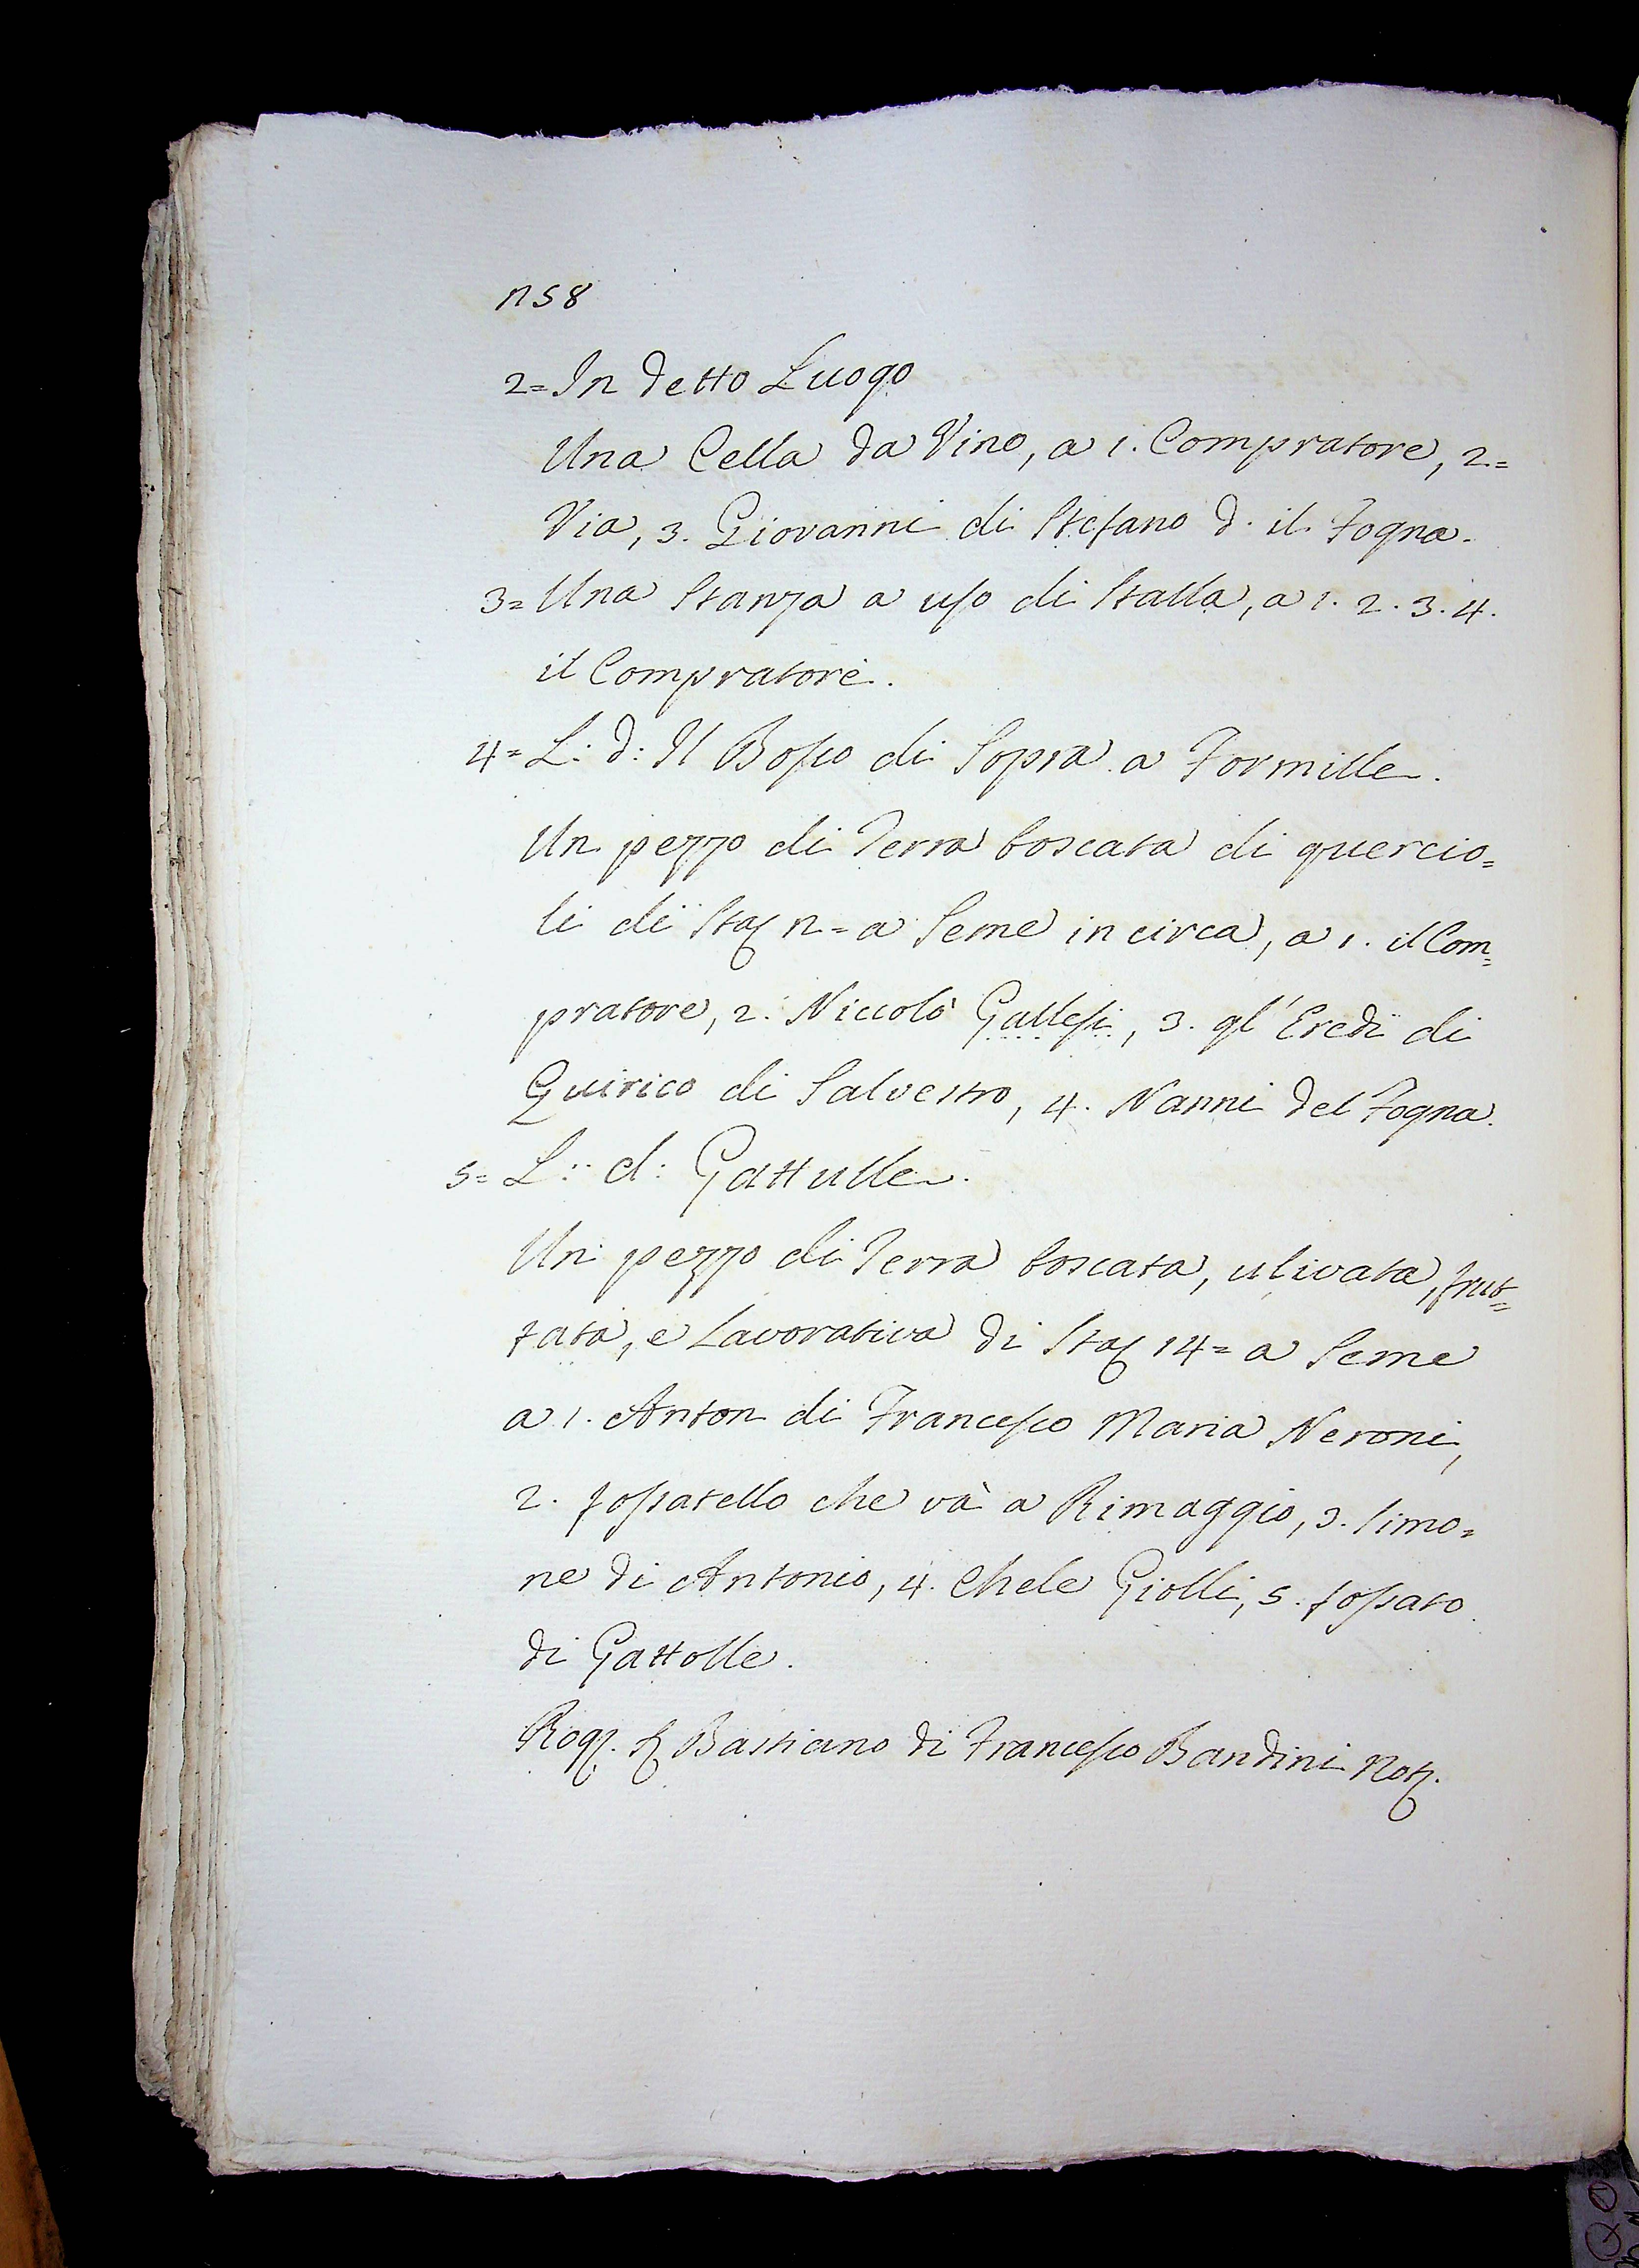 158
2= In detto Luogo
Una Cella da Vino, a 1. Compratore, 2=
Via, 3. Giovanni di Stefano d. il Fogna.
3= Una Stanza a uso di Stalla, a 1. 2. 3. 4.
il Compratore.
4= L: d: Il Bosco di Sopra a Formille.
Un pezzo di Terra boscata di quercio=
li di Sta 12= a Seme in circa, a 1. il Com=
pratore, 2. Niccolò Gallesi, 3. gl' Eredi di
Quirico di Salvestro, 4. Nanni del Fogna.
5= L: d: Gattulle.
Un pezzo di Terra boscata, ulivata, frut=
tata, e Lavorativa di Sta 14= a Seme
a 1. Anton di Francesco Maria Neroni,
2. fossatello che và a Rimaggio, 3. Simo=
ne di Antonio, 4. Chele Giolli, 5. fossato
di Gattolle.
Rog. S Bastiano di Francesco Bandini Not.